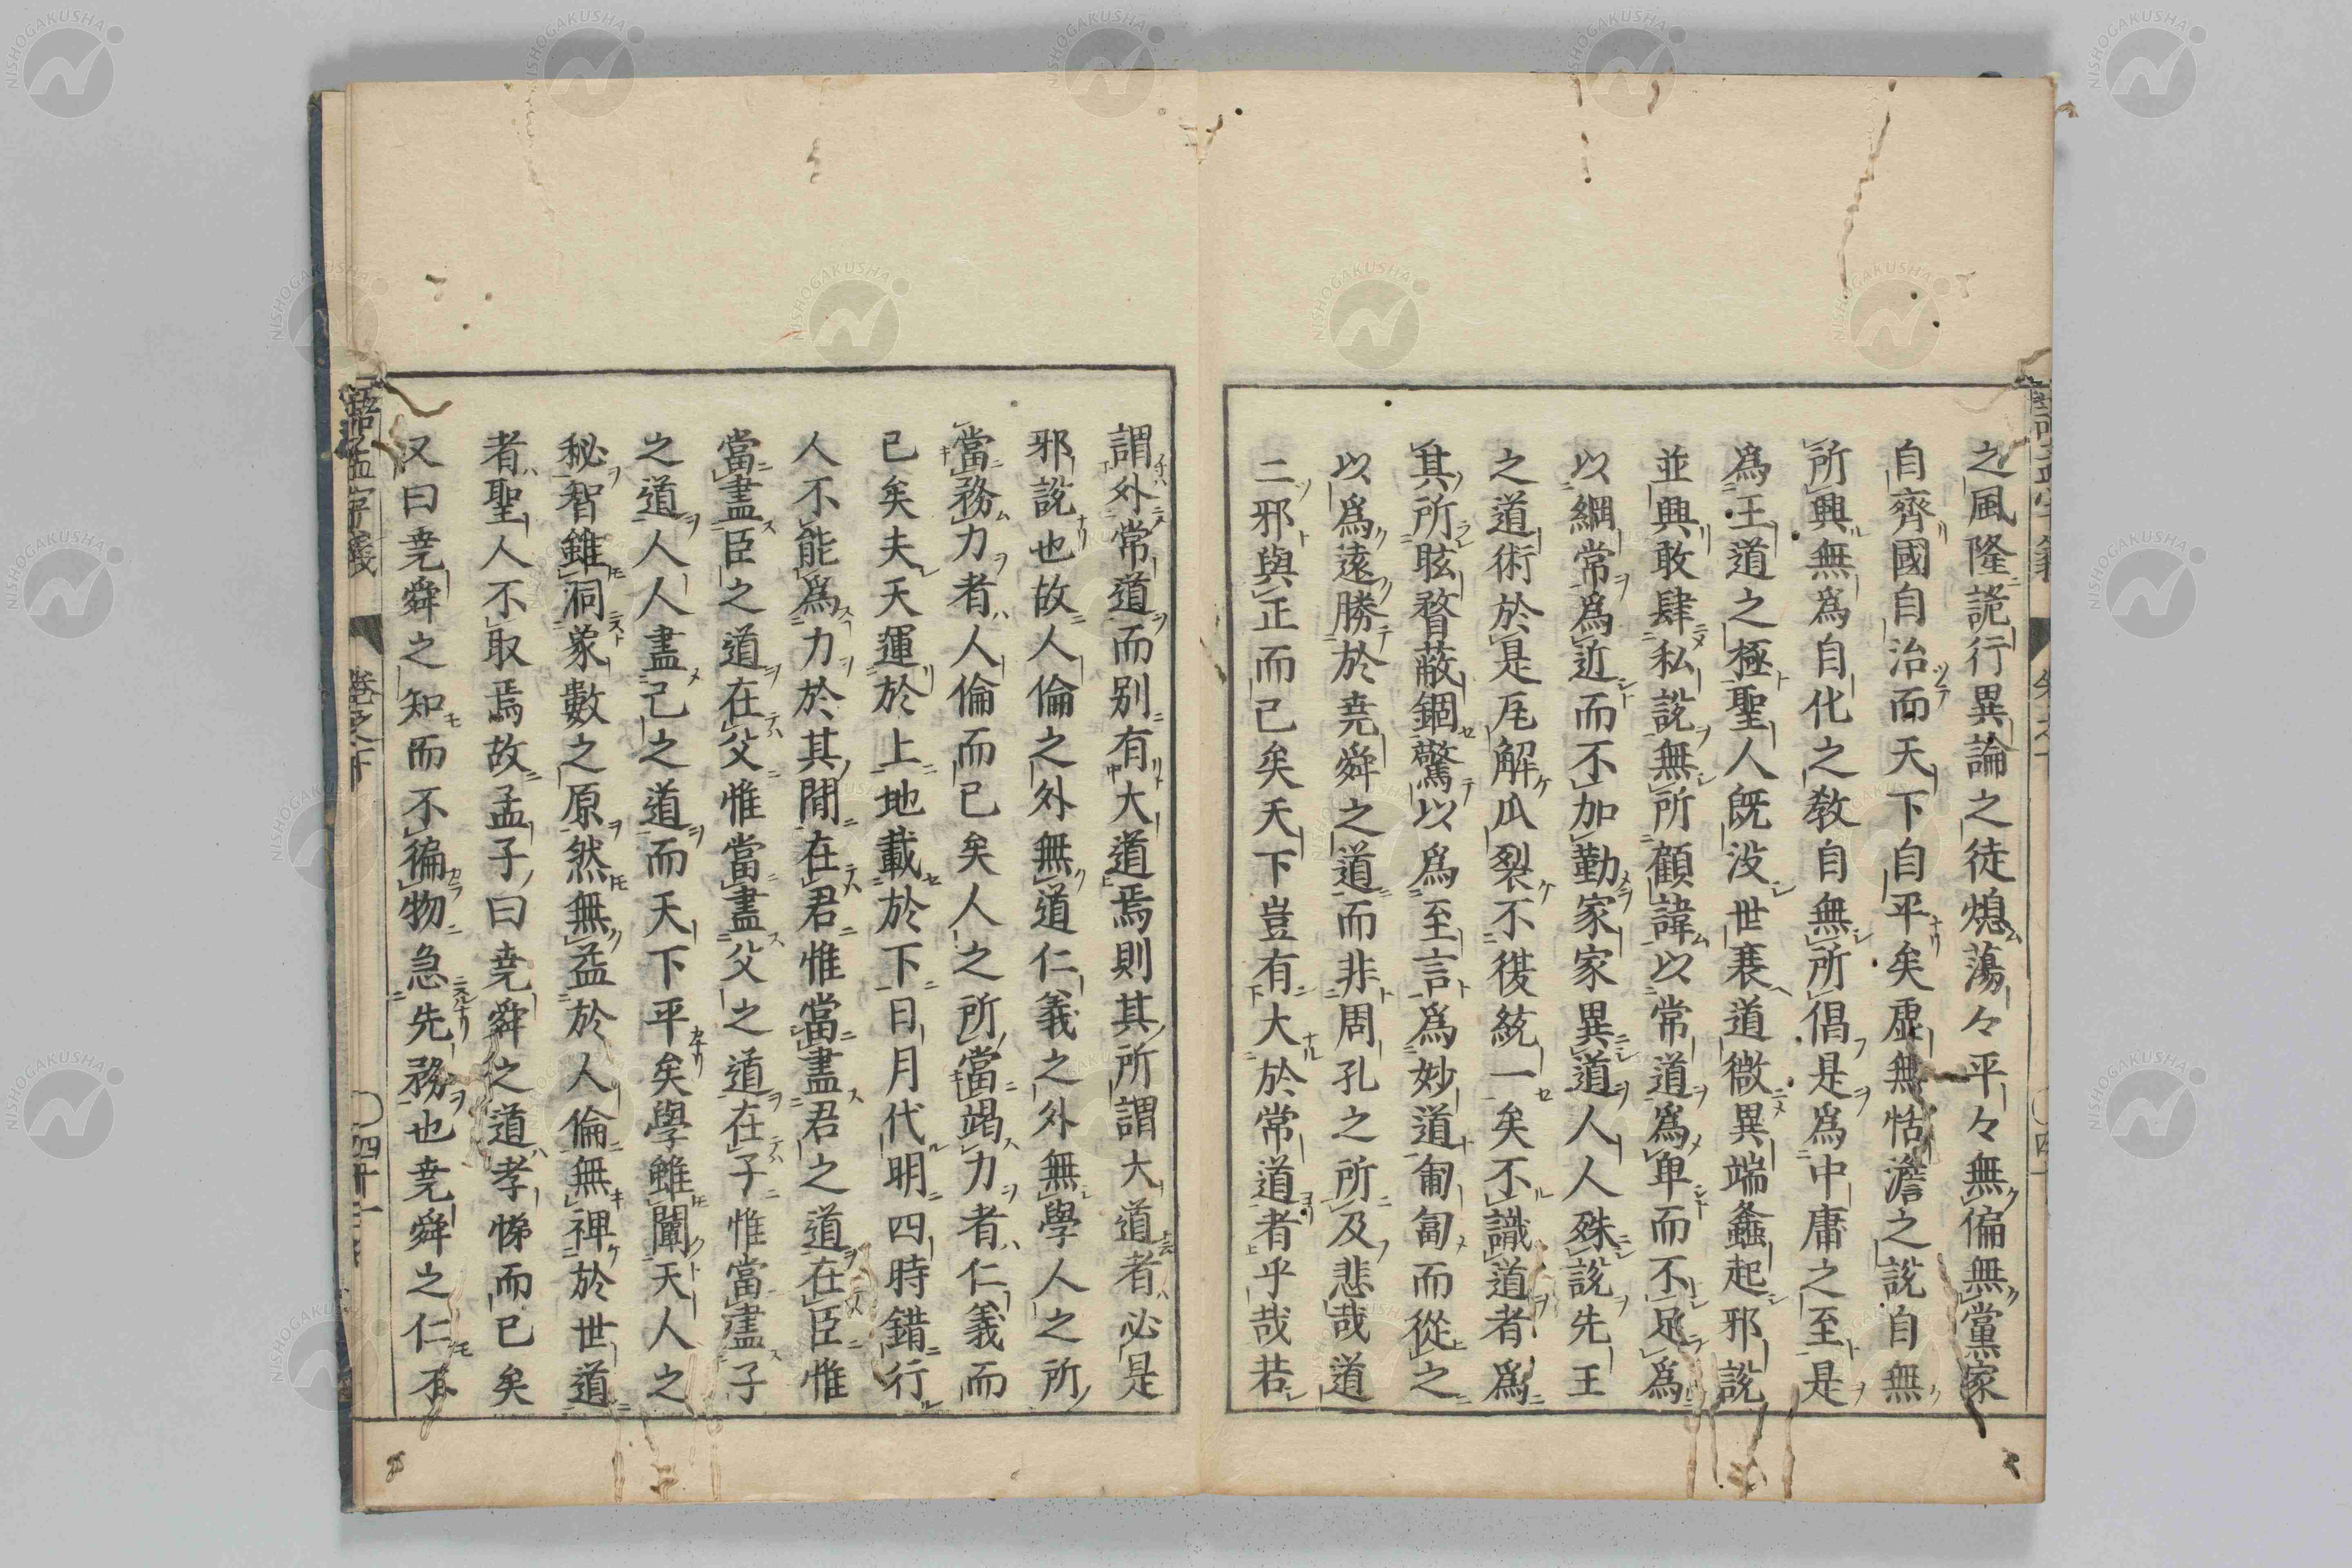 之風隆詭行異論之徒熄蕩々平々無偏無黨家
自齊國自治而天下自平矣虛無恬澹之說自無
所興無爲自化之教自無所倡是爲中庸之至是
爲王道之極聖人既沒世衰道微異端蠭起邪說
並興敢肆私說無所顧諱以常道爲卑而不足爲
以綱常爲近而不加勤家家異道人人殊說先王
之道術於是瓦解瓜裂不復統一矣不識道者爲
其所眩瞀蔽錮驚以爲至言爲妙道匍匐而從之
以爲遠勝於堯舜之道而非周孔之所及悲哉道
二邪與正而已矣天下豈有大於常道者乎哉若
謂外常道而別有大道焉則其所謂大道者必是
邪說也故人倫之外無道仁義之外無學人之所
當務力者人倫而已矣人之所當竭力者仁義而
已矣夫天運於上地載於下日月代明四時錯行
人不能爲力於其間在君惟當盡君之道在臣惟
當盡臣之道在父惟當盡父之道在子惟當盡子
之道人人盡己之道而天下平矣學雖闡天人之
秘智雖洞象數之原然無益於人倫無裨於世道
者聖人不取焉故孟子曰堯舜之道孝悌而已矣
又曰堯舜之知而不徧物急先務也堯舜之仁不
語孟字義
卷之下
四十一
NISHOGAKUSHA